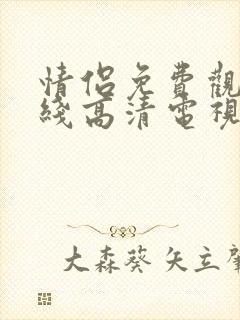 情侶免費觀
綫高清電視
大森葵 矢立肇